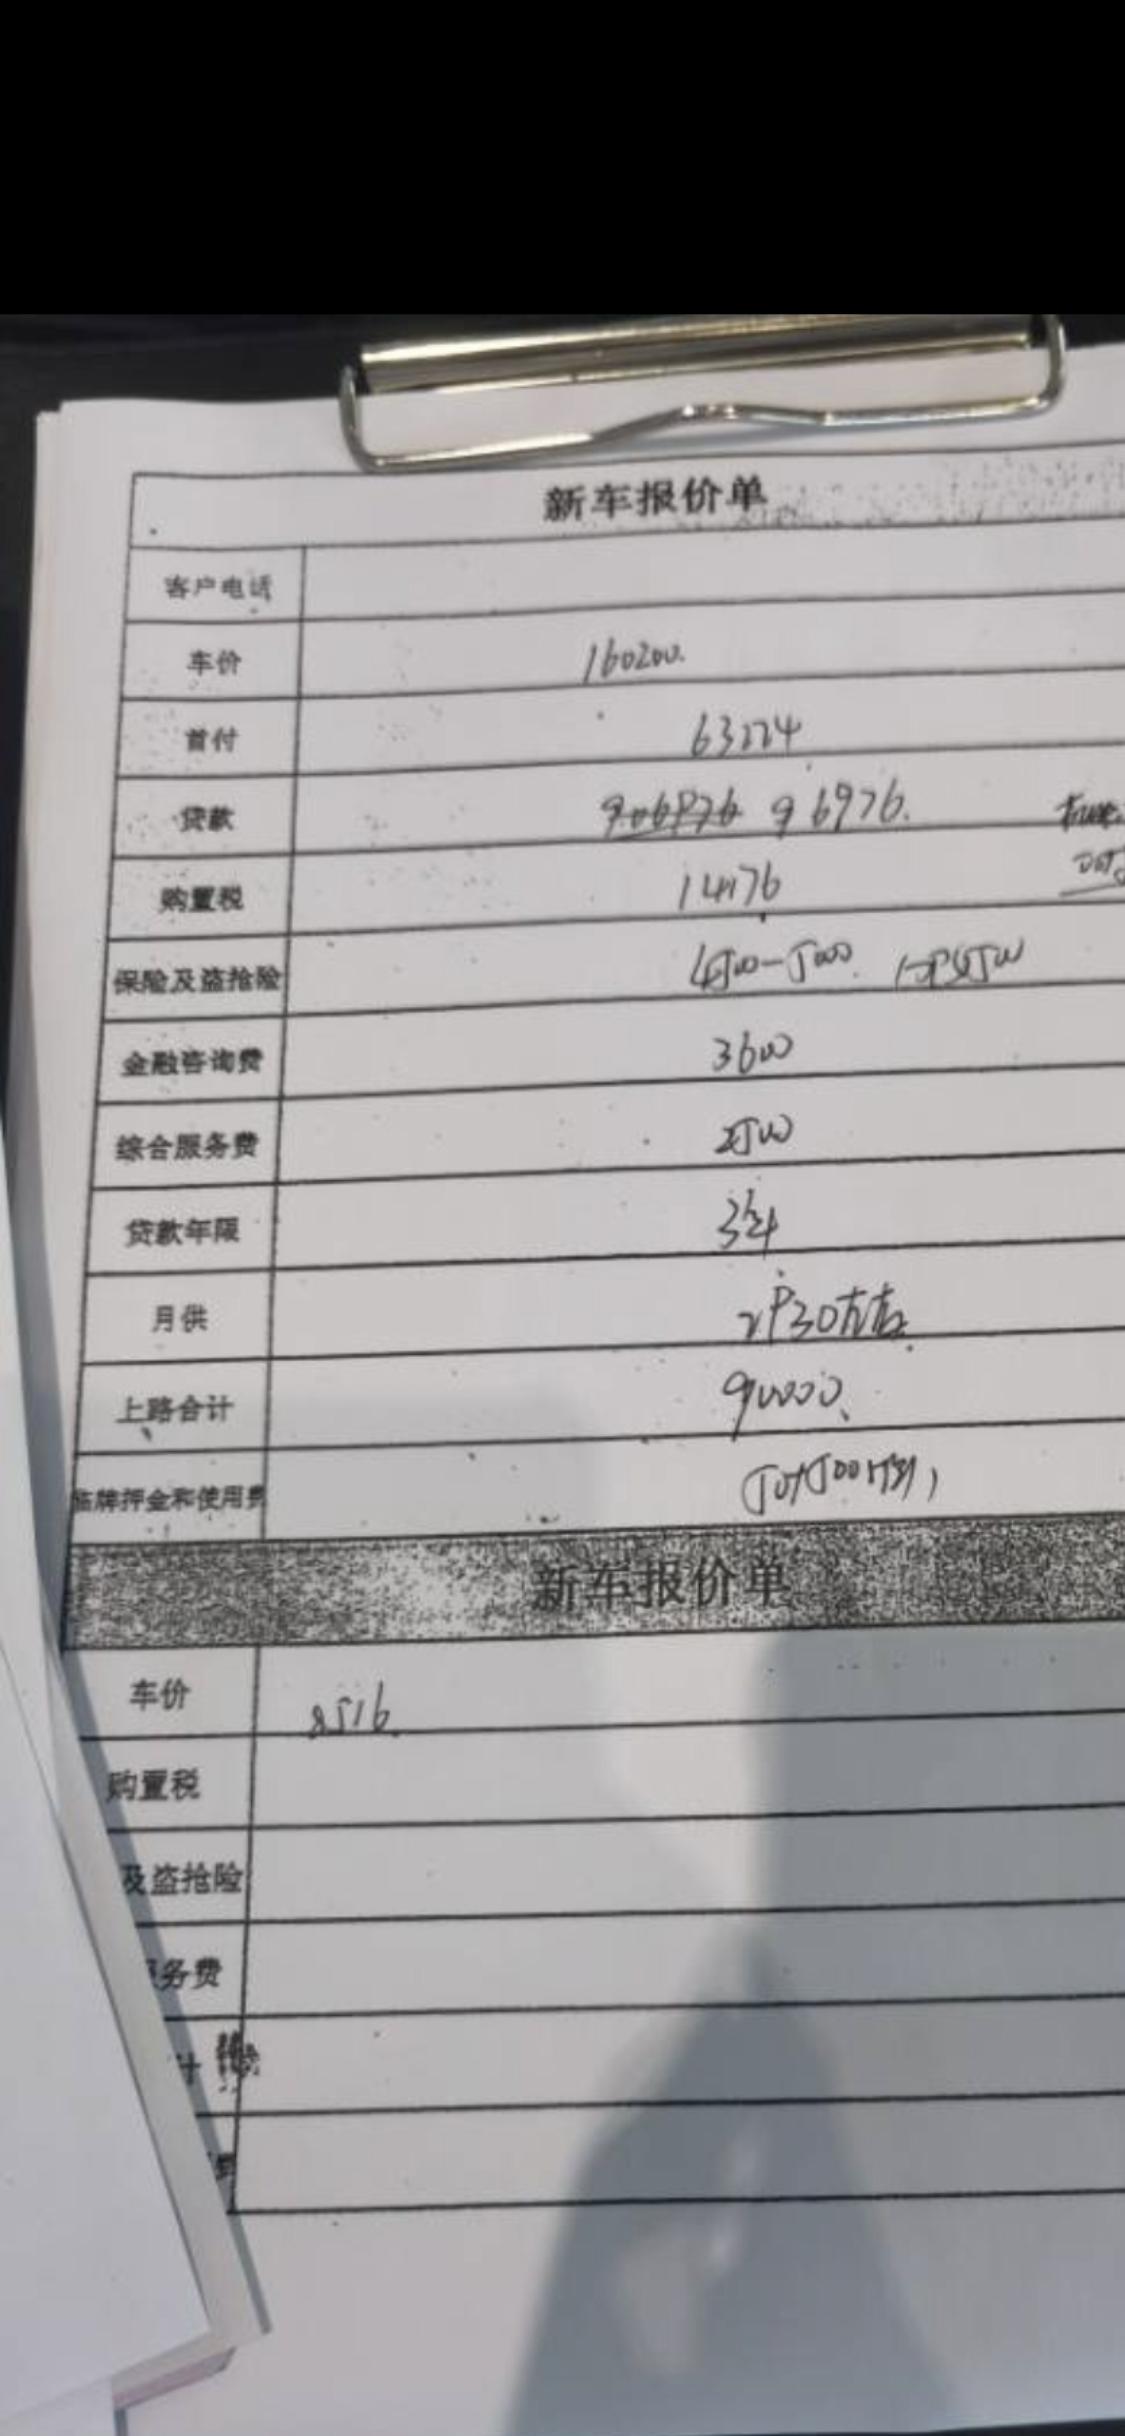 新车报价单
客户电话
车价 160200.
首付 63224
贷款 96976.
购置税 14176
保险及盗抢险 4500-5000.
金融咨询费 3600
综合服务费 2500
贷款年限 3年
月供 2930左右.
上路合计 90000、
临牌押金和使用费
新车报价单
车价 8516
购置税
及盗抢险
务费
计